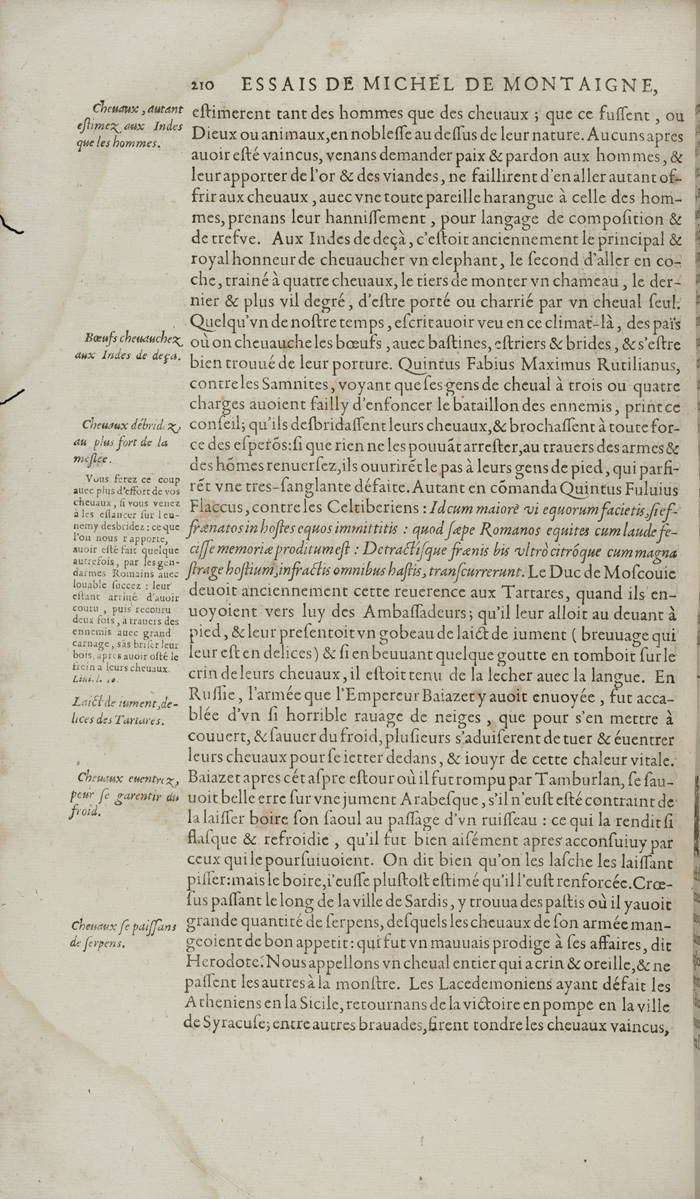 210 ESSAIS DE MICHEL DE MONTAIGNE,
Cheuaux, autant
eſtimez aux Indes
que les hommes.
eſtimerent tant des hommes que des cheuaux ; que ce fuſſent, ou
Dieux ou animaux, en nobleſſe au deſſus de leur nature. Aucuns apres
auoir eſté vaincus, venans demander paix & pardon aux hommes, &
leur apporter de l'or & des viandes, ne faillirent d'en aller autant of-
frir aux cheuaux, auec vne toute pareille harangue à celle des hom-
mes, prenans leur hanniſſement, pour langage de compoſition &
de trefve. Aux Indes de deçà, c'eſtoit anciennement le principal &
royal honneur de cheuaucher vn elephant, le ſecond d'aller en co-
che, trainé à quatre cheuaux, le tiers de monter vn chameau, le der-
nier & plus vil degré, d'eſtre porté ou charrié par vn cheual ſeul.
Quelqu'vn de noſtre temps, eſcrit auoir veu en ce climat-là, des païs
Bœufs cheuauchez
aux Indes de deça.
où on cheuauche les bœufs, auec baſtines, eſtriers & brides, & s'eſtre
bien trouué de leur porture. Quintus Fabius Maximus Rutilianus,
contre les Samnites, voyant que ſes gens de cheual à trois ou quatre
charges auoient failly d'enfoncer le bataillon des ennemis, print ce
Cheuaux débridez,
au plus fort de la
meſlee.
conſeil; qu'ils deſbridaſſent leurs cheuaux, & brochaſſent à toute for-
ce des eſperõs: ſi que rien ne les pouuãt arreſter, au trauers des armes &
des hõmes renuerſez, ils ouurirẽt le pas à leurs gens de pied, qui parfi-
rẽt vne tres-ſanglante défaite. Autant en cõmanda Quintus Fuluius
Flaccus, contre les Celtiberiens : Id cum maiorè vi equorum facietis, ſi ef-
frænatos in hoſtes equos immittitis : quod ſæpe Romanos equites cum laude fe-
ciſſe memoriæ proditum eſt : Detractiſque frænis bis vltrò citróque cum magna
ſtrage hoſtium, infractis omnibus haſtis, tranſcurrerunt. Le Duc de Moſcouie
Vous ferez ce coup
auec plus d'effort de vos
cheuaux, ſi vous venez
à les eſlancer ſur l'en-
nemy desbridez : ce que
l'on nous rapporte,
auoir eſté fait quelque
autrefois, par les gen-
darmes Romains auec
louable ſuccez : leur
eſtant arriué d'auoir
couru, puis recouru
deux fois, à trauers des
ennemis auec grand
carnage, sãs briſer leur
bois, apres auoir oſté le
frein a leurs cheuaux.
deuoit anciennement cette reuerence aux Tartares, quand ils en-
uoyoient vers luy des Ambaſſadeurs; qu'il leur alloit au deuant à
pied, & leur preſentoit vn gobeau de laict de iument (breuuage qui
leur eſt en delices) & ſi en beuuant quelque goutte en tomboit ſur le
crin de leurs cheuaux, il eſtoit tenu de la lecher auec la langue. En
Laict de iument, de-
lices des Tartares.
Ruſſie, l'armée que l'Empereur Baiazet y auoit enuoyée, fut acca-
blée d'vn ſi horrible rauage de neiges, que pour s'en mettre à
couuert, & ſauuer du froid, pluſieurs s'aduiſerent de tuer & éuentrer
leurs cheuaux pour ſe ietter dedans, & iouyr de cette chaleur vitale.
Cheuaux euentrez,
pour ſe garentir du
froid.
Baiazet apres cét aſpre eſtour où il fut rompu par Tamburlan, ſe ſau-
uoit belle erre ſur vne jument Arabeſque, s'il n'euſt eſté contraint de
la laiſſer boire ſon ſaoul au paſſage d'vn ruiſſeau : ce qui la rendit ſi
flaſque & refroidie, qu'il fut bien aiſément apres acconſuiuy par
ceux qui le pourſuiuoient. On dit bien qu'on les laſche les laiſſant
piſſer: mais le boire, i'euſſe pluſtoſt eſtimé qu'il l'euſt renforcée. Crœ-
ſus paſſant le long de la ville de Sardis, y trouua des paſtis où il y auoit
Cheuaux ſe paiſſans
de ſerpens.
grande quantité de ſerpens, deſquels les cheuaux de ſon armée man-
geoient de bon appetit : qui fut vn mauuais prodige à ſes affaires, dit
Herodote. Nous appellons vn cheual entier qui a crin & oreille, & ne
paſſent les autres à la monſtre. Les Lacedemoniens ayant défait les
Atheniens en la Sicile, retournans de la victoire en pompe en la ville
de Syracuſe; entre autres brauades, firent tondre les cheuaux vaincus,